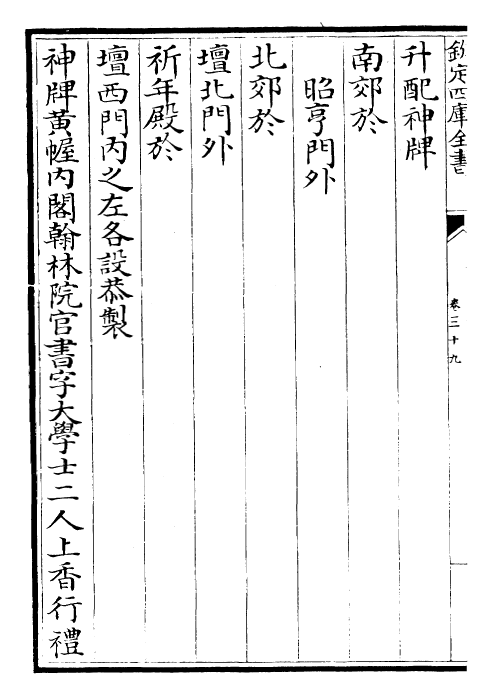 欽定四庫全書
卷三十九
升配神牌
南郊於
昭亨門外
北郊於
壇北門外
祈年殿於
壇西門內之左各設恭製
神牌黃幄內閣翰林院官書字大學士二人上香行禮